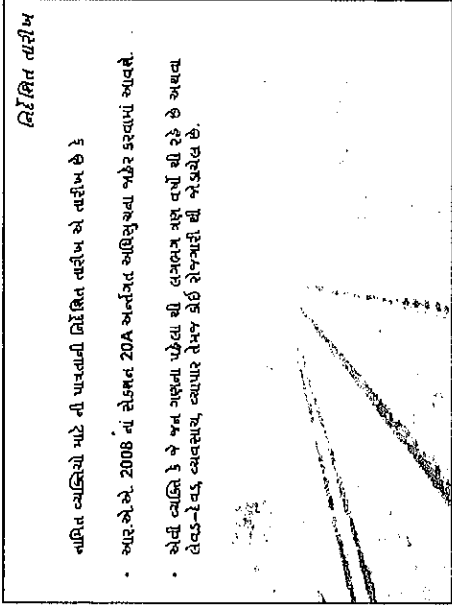 નિર્દેશિત તારીખ
નામિત વ્યક્તિઓ માટે ની પાત્રતાની નિર્દેશિત તારીખ એ તારીખ છે કે
• આર.એ.એ. 2008 નાં સેક્શન 20A અર્ન્તગત અધિસુચના જાહેર કરવામાં આવશે.
• એવી વ્યક્તિ કે જે જન ગણના પહેલા થી લગભગ ત્રણ વર્ષો થી રહે છે અથવા
લેવડ-દેવડ, વ્યવસાય, વ્યાપાર તેમજ કોઈ રોજગારી થી જોડાયેલ છે.